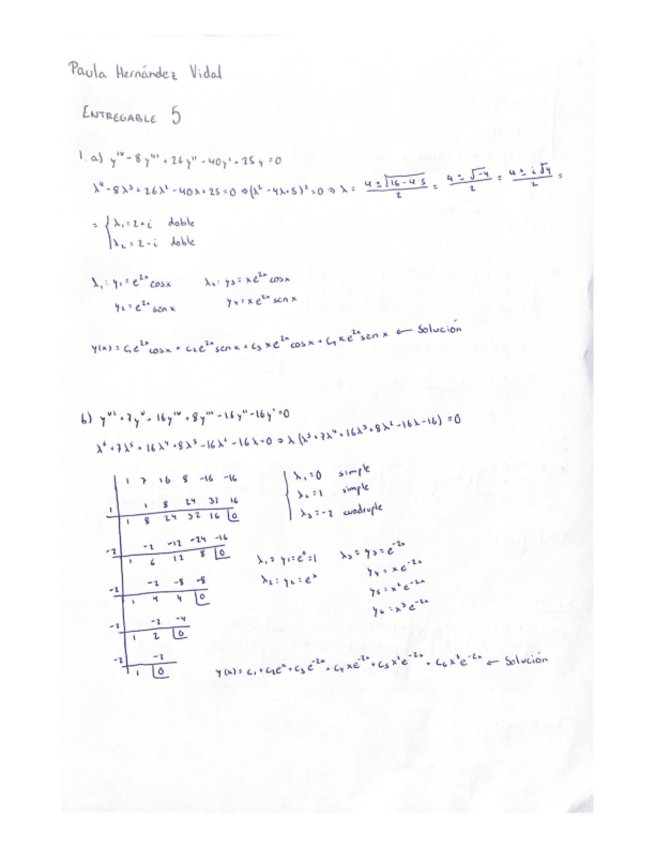 Paula Hernández Vidal
ENTREGABLE 5
1. a) yⁱᵛ - 8y''' + 26y'' - 40y' + 25y = 0
λ⁴ - 8λ³ + 26λ² - 40λ + 25 = 0 ⇒ (λ² - 4λ + 5)² = 0 ⇒ λ = (4 ± √(16 - 4·5))/2 = (4 ± √-4)/2 = (4 ± i√4)/2 =
= { λ₁ = 2+i doble
λ₂ = 2-i doble
λ₁: y₁ = e²ˣ cosx λ₂: y₃ = xe²ˣ cosx
y₂ = e²ˣ sen x y₄ = xe²ˣ sen x
y(x) = c₁e²ˣ cosx + c₂e²ˣ senx + c₃xe²ˣ cosx + c₄xe²ˣ sen x ← Solución
b) yᵛⁱ + 7yᵛ + 16yⁱᵛ + 8y''' - 16y'' - 16y' = 0
λ⁶ + 7λ⁵ + 16λ⁴ + 8λ³ - 16λ² - 16λ = 0 ⇒ λ (λ⁵ + 7λ⁴ + 16λ³ + 8λ² - 16λ - 16) = 0
1 7 16 8 -16 -16
1 1 8 24 32 16
1 8 24 32 16 0
-2 -2 -12 -24 -16
1 6 12 8 0
-2 -2 -8 -8
1 4 4 0
-2 -2 -4
1 2 0
-2 -2
1 0
λ₁ = 0 simple
λ₂ = 1 simple
λ₃ = -2 cuadruple
λ₁: y₁ = e⁰ = 1 λ₃ = y₃ = e⁻²ˣ
λ₂: y₂ = eˣ y₄ = xe⁻²ˣ
y₅ = x²e⁻²ˣ
y₆ = x³e⁻²ˣ
y(x) = c₁ + c₂eˣ + c₃e⁻²ˣ + c₄xe⁻²ˣ + c₅x²e⁻²ˣ + c₆x³e⁻²ˣ ← Solución